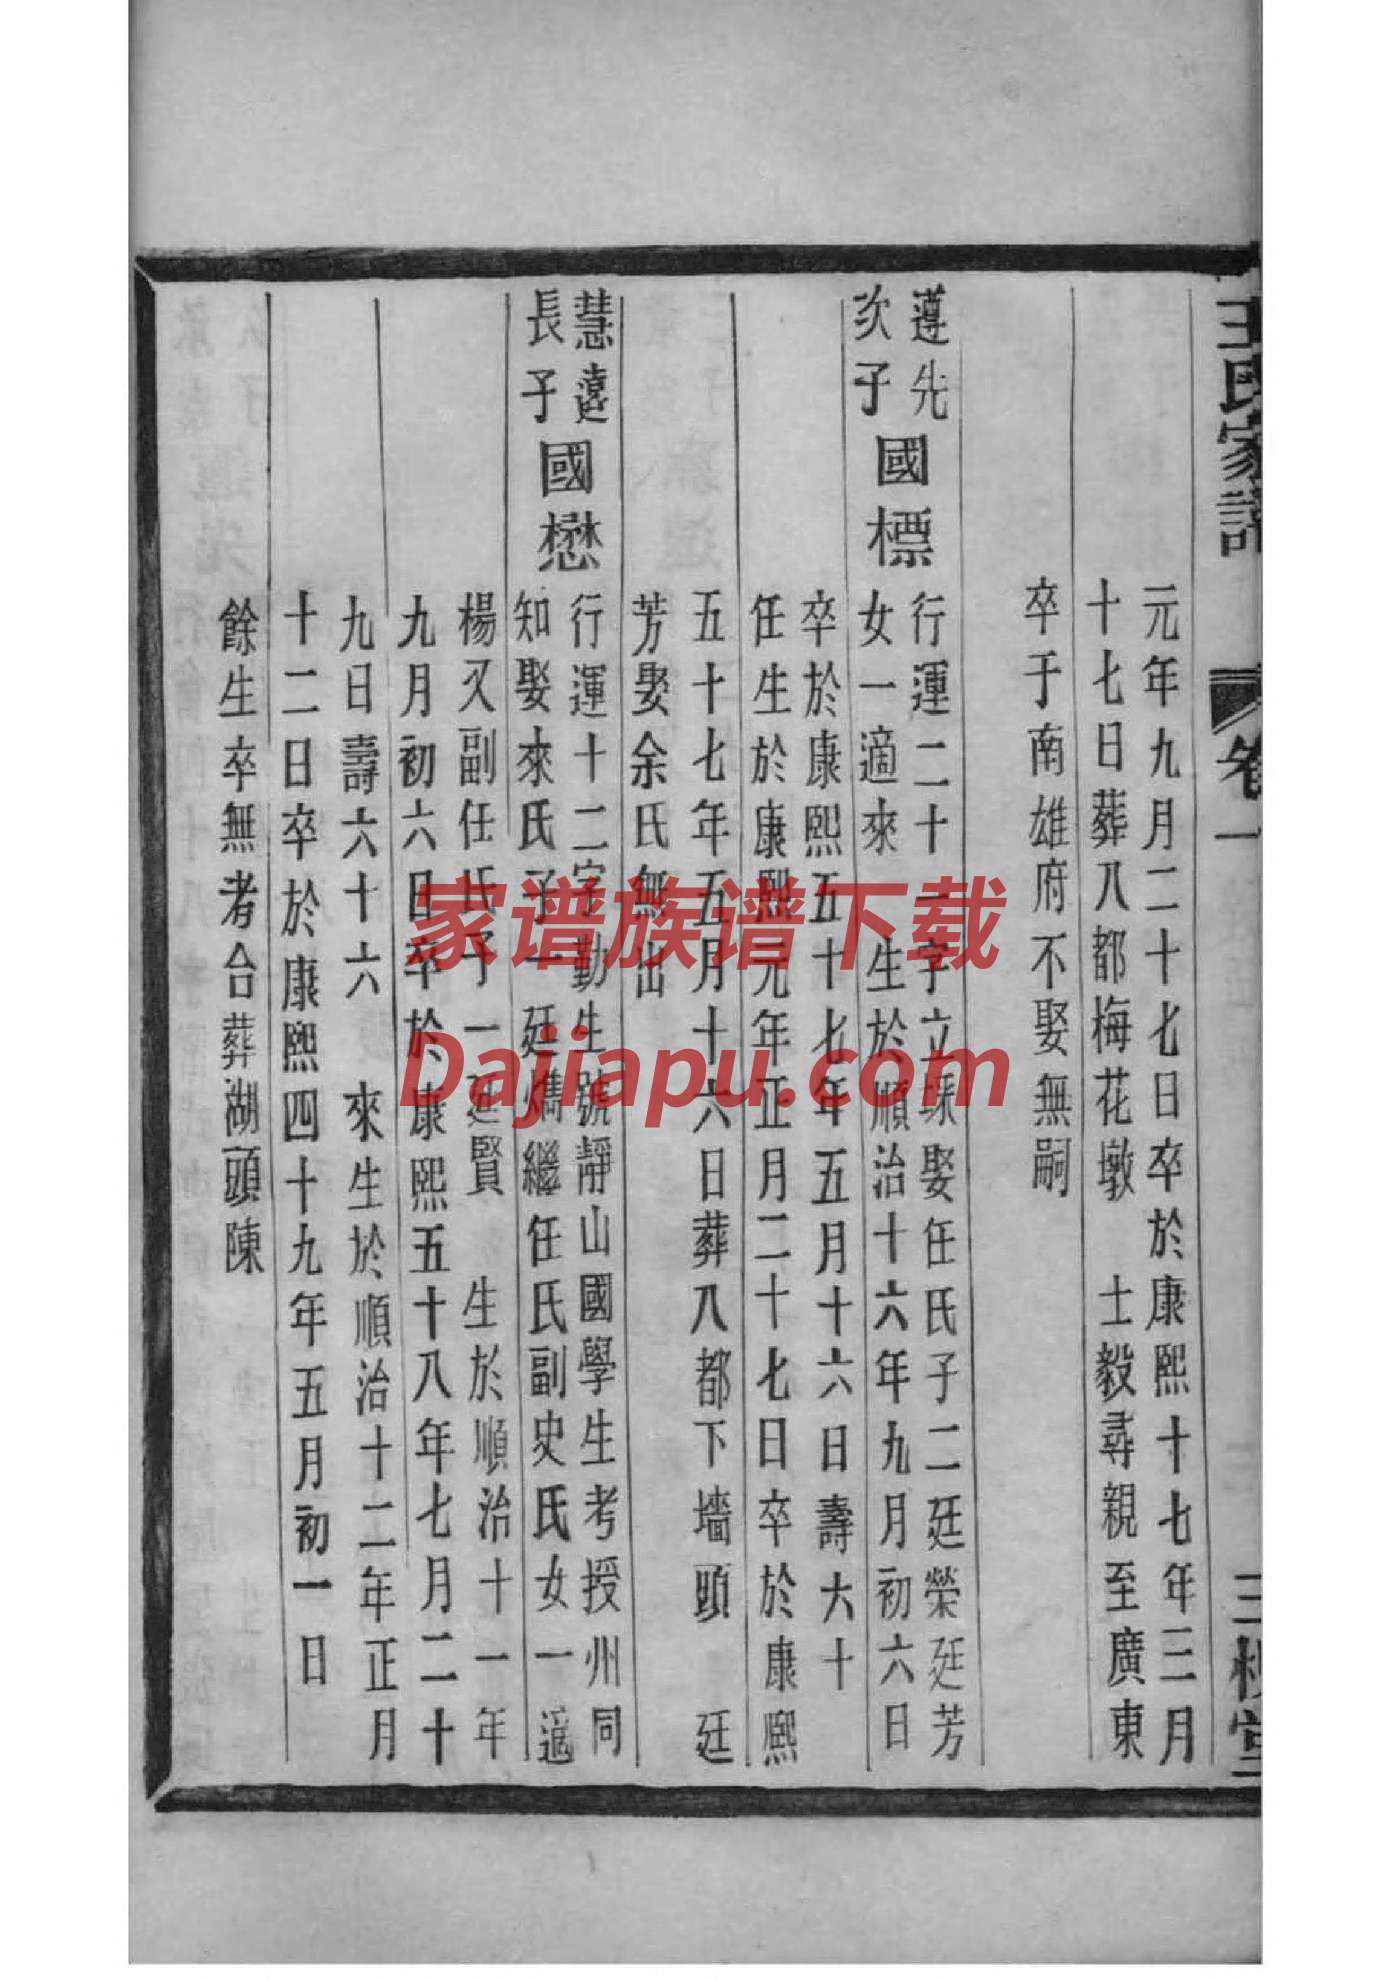 王氏家譜
卷一
三槐堂
元年九月二十七日卒於康熙十七年三月
十七日葬八都梅花墩 士毅尋親至廣東
卒于南雄府不娶無嗣
遵先
次子
國標
行運二十一字立球娶任氏子二廷榮廷芳
女一適來 生於順治十六年九月初六日
卒於康熙五十七年五月十六日壽六十
任生於康熙元年正月二十七日卒於康熙
五十七年五月十六日葬八都下墻頭 廷
芳娶余氏無出
慧遠
長子
國懋
行運十二字勤生號靜山國學生考授州同
知娶來氏子一廷燆繼任氏副史氏女一適
楊又副任氏子一廷賢 生於順治十一年
九月初六日卒於康熙五十八年七月二十
九日壽六十六 來生於順治十二年正月
十二日卒於康熙四十九年五月初一日
餘生卒無考合葬湖頭陳
家谱族谱下载
Dajiapu.com